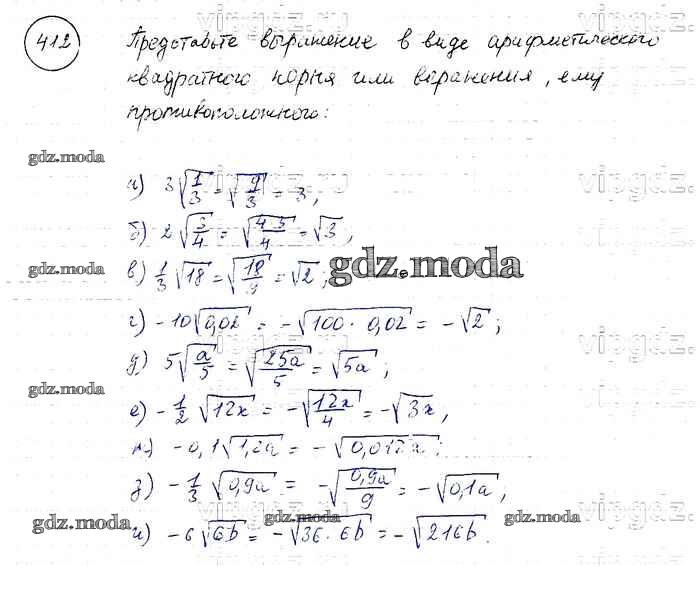 412
Представьте выражение в виде арифметического
квадратного корня или выражения, ему
противоположного:
gdz.moda
а) 3√(1/3) = √(9/3) = 3,
б) 2√(3/4) = √(4·3/4) = √3,
gdz.moda
в) 1/3 √18 = √(18/9) = √2;
gdz.moda
г) -10√0,02 = -√(100·0,02) = -√2;
д) 5√(a/5) = √(25a/5) = √5a;
gdz.moda
е) -1/2 √12x = -√(12x/4) = -√3x,
ж) -0,1√1,2a = -√0,012a;
з) -1/3 √0,9a = -√(0,9a/9) = -√0,1a;
gdz.moda
gdz.moda
gdz.moda
и) -6√6b = -√(36·6b) = -√216b.